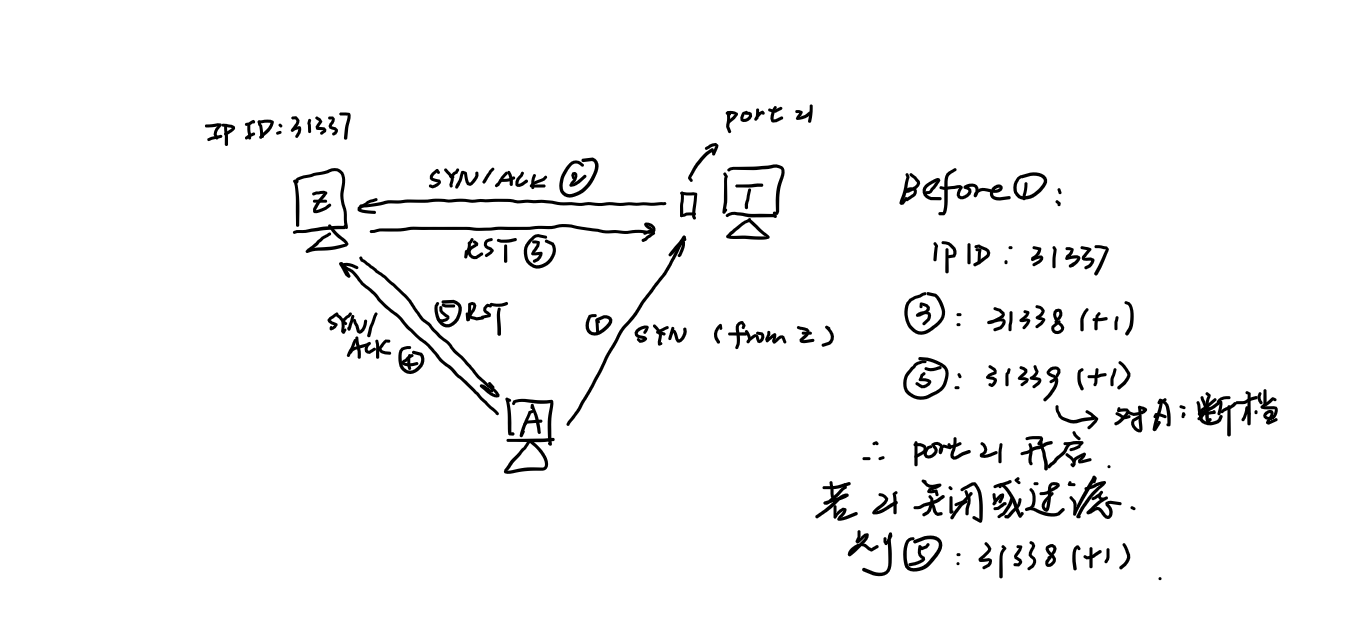 IP ID: 31337
port 21
Z
SYN/ACK ②
T
RST ③
⑤ RST
SYN/
ACK ④
① SYN (from Z)
A
Before ①:
IP ID: 31337
③: 31338 (+1)
⑤: 31339 (+1)
对A: 断档
∴ port 21 开启.
若 21 关闭或过滤.
则⑤: 31338 (+1)